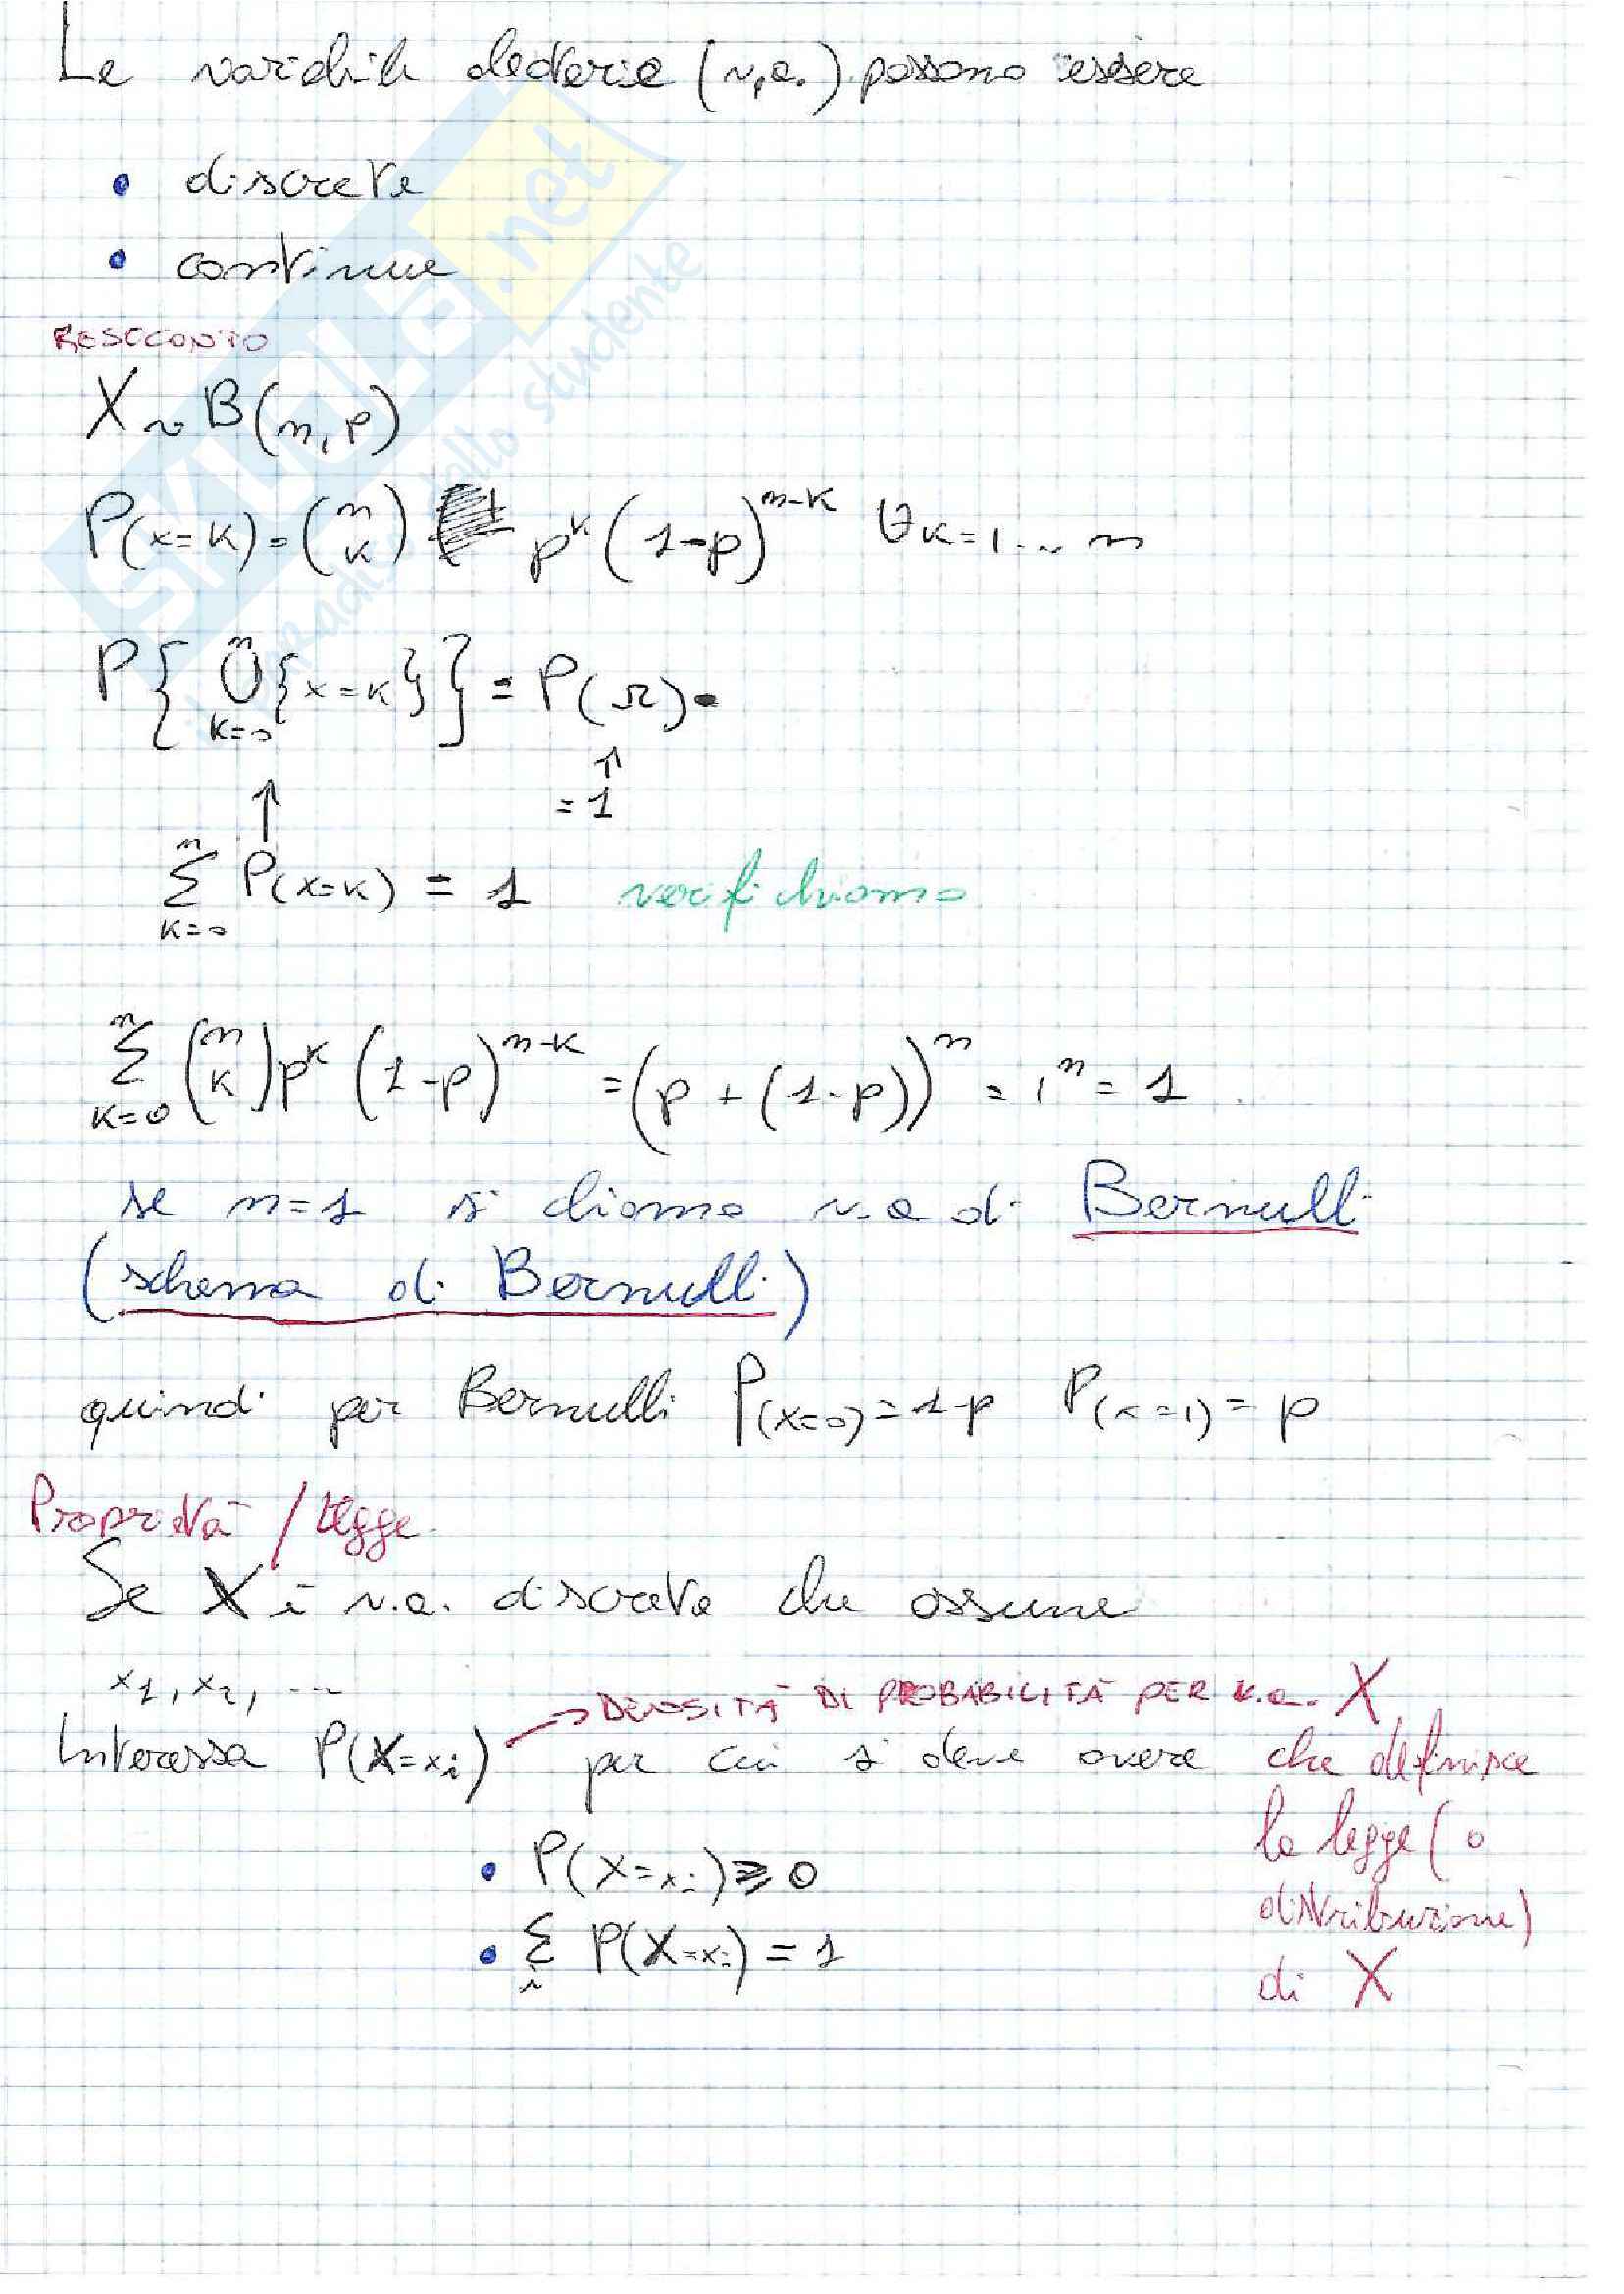 Le variabili aleatorie (v.a.) possono essere
• discrete
• continue
RESOCONTO
X ~ B(n, p)
P(x=k) = (n k) p^k (1-p)^{n-k} ∀k=1...n
P{ ⋃_{k=0}^{n} {x=k} } = P(Ω) =
↑ = 1
↑
∑_{k=0}^{n} P(x=k) = 1 verifichiamo
∑_{k=0}^{n} (n k) p^k (1-p)^{n-k} = (p + (1-p))^n = 1^n = 1
se n=1 si chiama v.a di Bernulli
(schema di Bernulli)
quindi per Bernulli P(x=0) = 1-p P(x=1) = p
Proprietà / Legge
Se X è v.a. discreta che assume
x1, x2, ...
Interessa P(X=xi) → DENSITÀ DI PROBABILITÀ PER v.a. X
per cui si deve avere che definisce
la legge (o
distribuzione)
di X
• P(X=xi) ≥ 0
• ∑_i P(X=xi) = 1
SKUOLA.net
dallo studente